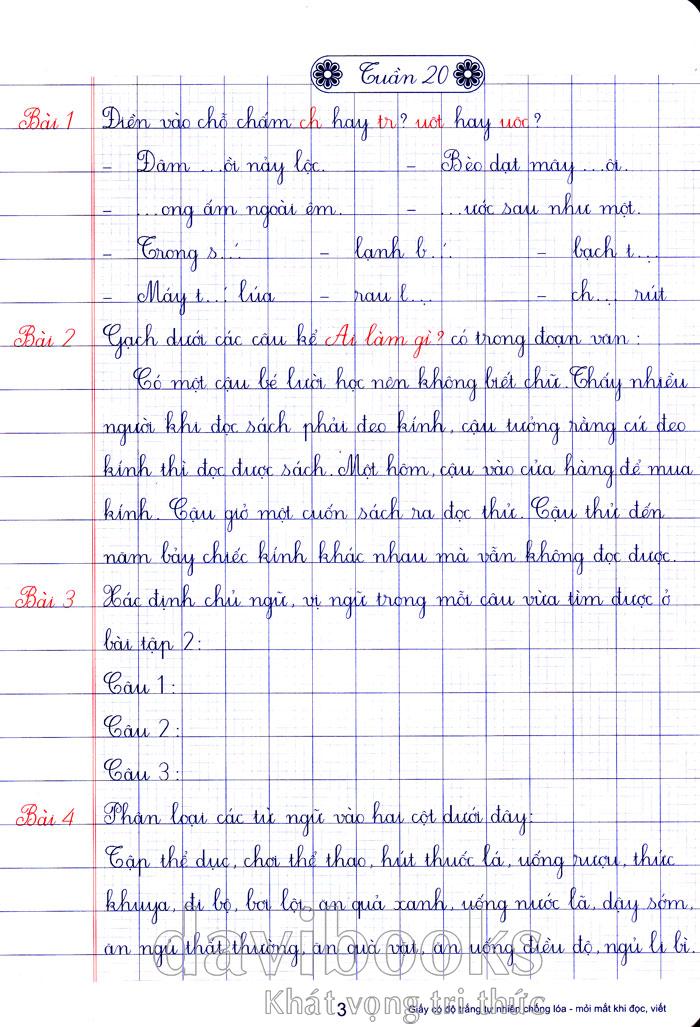 Tuần 20
Bài 1 Điền vào chỗ chấm ch hay tr? uôt hay uôc?
- Đâm ...ồi nảy lộc. - Bèo dạt mây ...ôi.
- ...ong ấm ngoài êm. - ...ước sau như một.
- Trong s...́ - lạnh b...́ - bạch t...
- Máy t...́ lúa - rau l... - ch... rút
Bài 2 Gạch dưới các câu kể Ai làm gì? có trong đoạn văn:
Có một cậu bé lười học nên không biết chữ. Thấy nhiều
người khi đọc sách phải đeo kính, cậu tưởng rằng cứ đeo
kính thì đọc được sách. Một hôm, cậu vào cửa hàng để mua
kính. Cậu giở một cuốn sách ra đọc thử. Cậu thử đến
năm bảy chiếc kính khác nhau mà vẫn không đọc được.
Bài 3 Xác định chủ ngữ, vị ngữ trong mỗi câu vừa tìm được ở
bài tập 2:
Câu 1:
Câu 2:
Câu 3:
Bài 4 Phân loại các từ ngữ vào hai cột dưới đây:
Tập thể dục, chơi thể thao, hút thuốc lá, uống rượu, thức
khuya, đi bộ, bơi lội, ăn quả xanh, uống nước lã, dậy sớm,
ăn ngủ thất thường, ăn quà vặt, ăn uống điều độ, ngủ li bì.
davibooks
Khát vọng tri thức
3 Giấy có độ trắng tự nhiên chống lóa - mỏi mắt khi đọc, viết